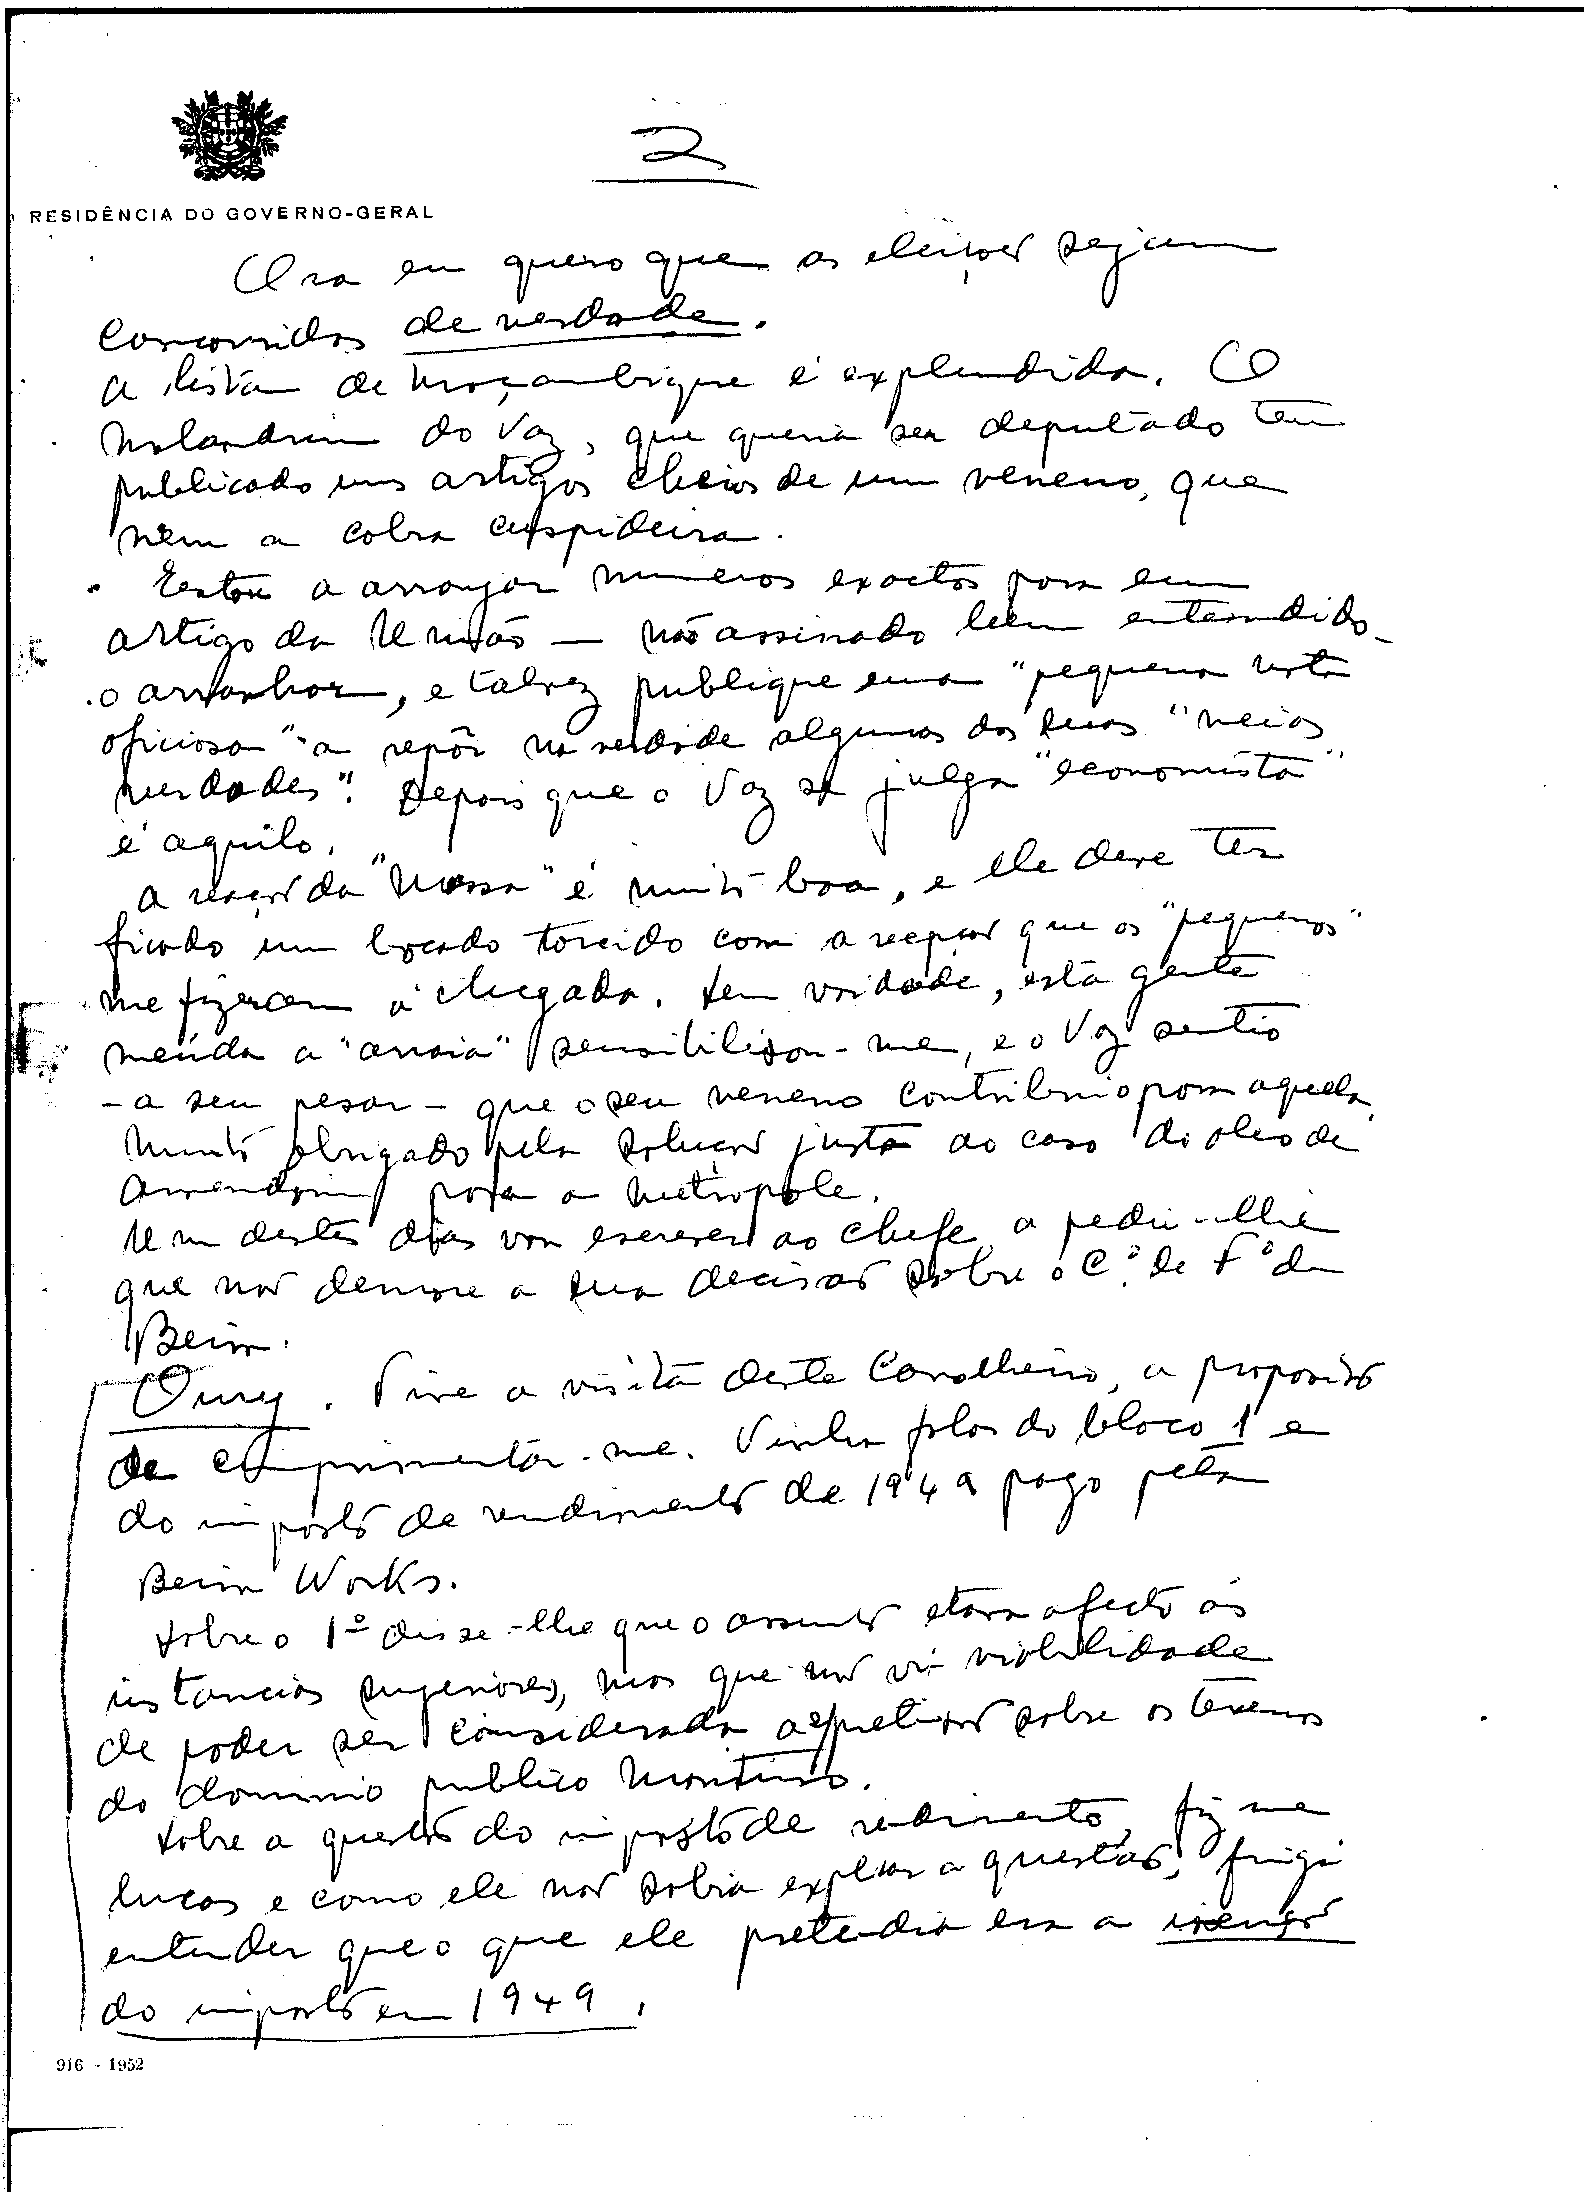 2
RESIDÊNCIA DO GOVERNO-GERAL
Ora eu quero que as eleições sejam
concorridas de verdade.
A lista de Moçambique é explendida. O
malandrim do Vaz, que queria ser deputado tem
publicado uns artigos cheios de um veneno, que
nem a cobra cuspideira.
Estou a arranjar numeros exactos para um
artigo da União — não assinado bem entendido -
o arranhar, e talvez publique uma "pequena nota
oficiosa" a repôr na verdade algumas das suas "meias
verdades". Depois que o Vaz se julga "economista"
é aquilo.
A reacção da "Massa" é muito boa, e ele deve ter
ficado um bocado torcido com a recepção que os "pequenos"
me fizeram á chegada. Em verdade, esta gente
meúda a "arraia" sensibilizou-me, e o Vaz sentio
- a seu pesar - que o seu veneno contribuio para aquela.
Muito obrigado pela solução justa ao caso do oleo de
amendoim para a metrópole.
Um destes dias vou escrever ao chefe a pedir-lhe
que não demore a sua decisão sobre o C.º de F.º da
Beira.
Oury. Tive a visita deste Cavalheiro, a proposito
de cumprimentar-me. Vinha falar do bloco 1 e
do imposto de rendimento de 1949 pago pela
Beira Works.
Sobre o 1º disse-lhe que o assunto estava afecto ás
instancias superiores, mas que não via viabilidade
de poder ser considerada a pretensão sobre os terrenos
do dominio publico maritimo.
Sobre a questão do imposto de rendimento, fiz-me
lucas e como ele não sabia explicar a questão, fingi
entender que o que ele pretendia era a isenção
do imposto em 1949.
916 - 1952